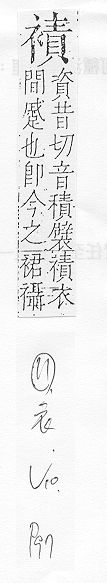 襀
資昔切音積襞襀衣
間蹙也卽今之裙襵
⑪衣.
V10.
P97